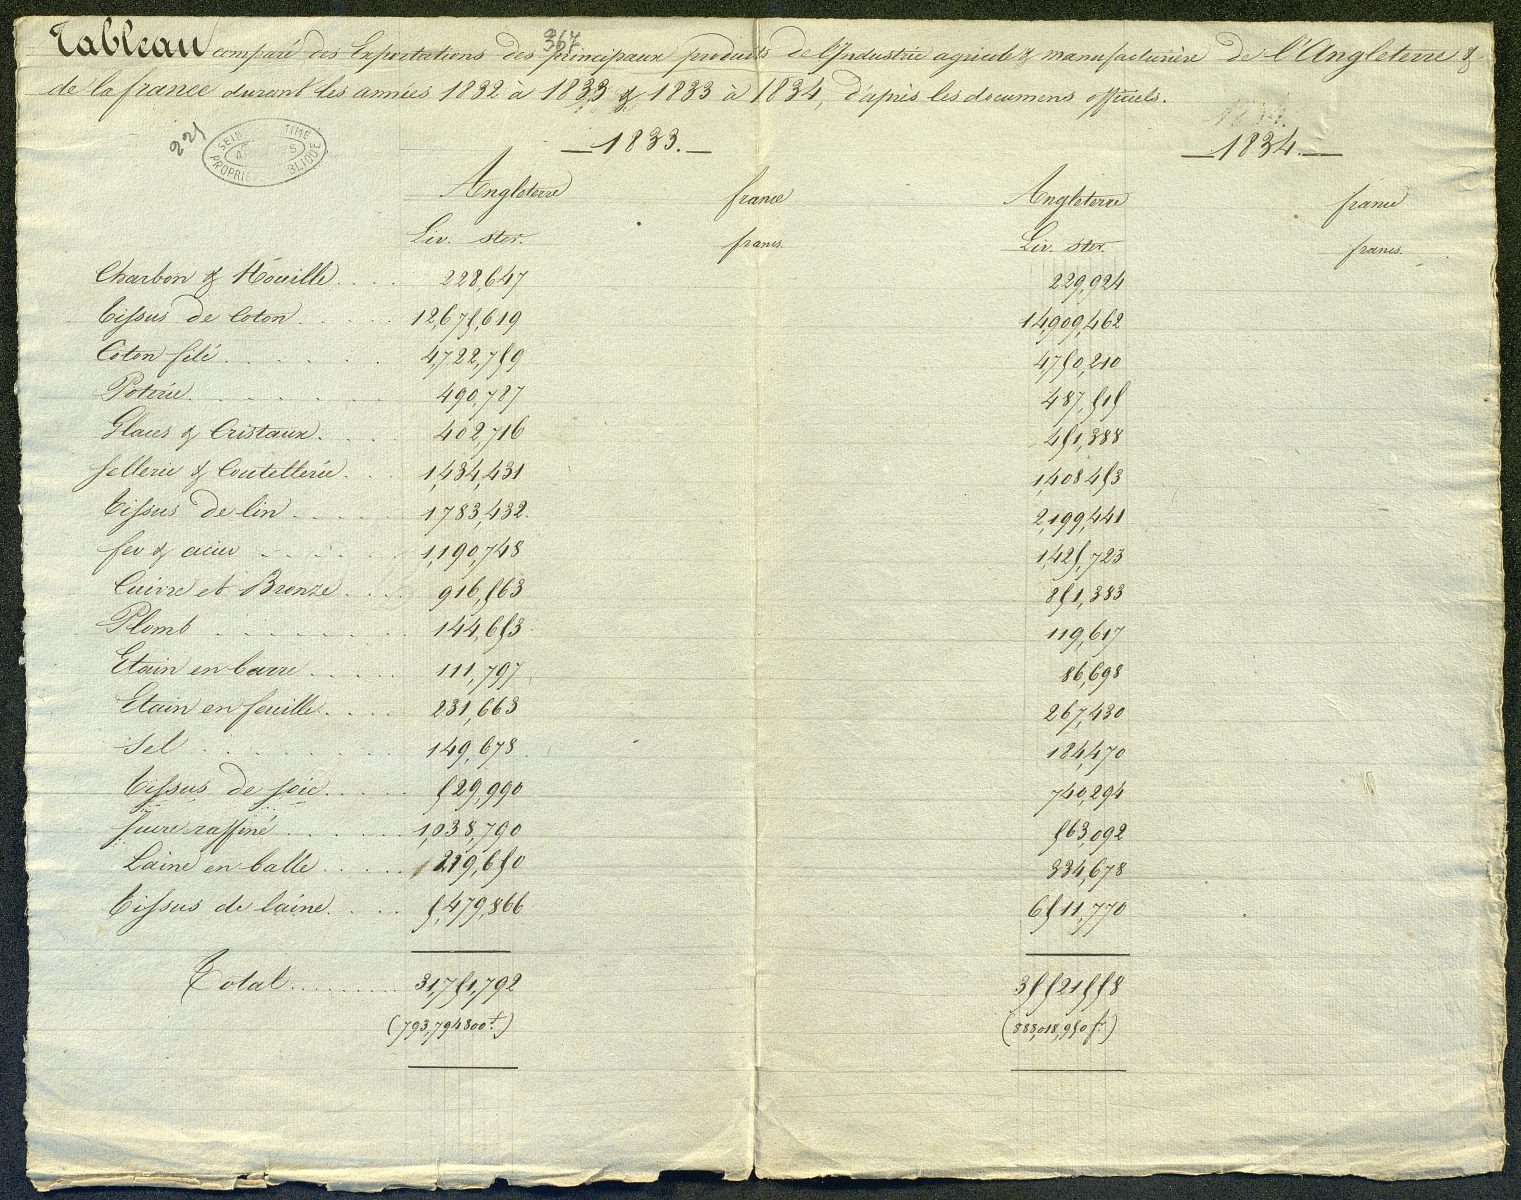 367
Tableau comparé des Exportations des principaux produits de l'Industrie agricole & manufacturière de l'Angleterre &
de la france durant les années 1832 à 1833 & 1833 à 1834, d'après les documens officiels.
221
SEINE MARITIME
ARCHIVES
PROPRIÉTÉ PUBLIQUE
— 1833. — — 1834. —
Angleterre france Angleterre france
Liv. ster. francs. Liv. ster. francs.
Charbon & Houille.... 228,647 229,924
Tissus de Coton...... 12,675,619 14,909,462
Coton filé....... 4,722,759 4,750,210
Poterie....... 490,727 487,515
Glaces & Cristaux.... 402,716 451,388
Sellerie & Coutellerie.... 1,434,431 1,408453
Tissus de lin...... 1783,432. 2,199,441
fer & acier..... 1,190,748 1,425,723
Cuivre et Bronze.... 916,563 851,383
Plomb....... 144,653. 119,617
Etain en barre..... 111,797 86,698
Etain en feuille..... 231,663 267,430
Sel....... 149,678. 184,470
Tissus de soie..... 529,990 740,294
Sucre raffiné...... 1,038,790 563,092
Laine en balle...... 219,650 334,678
Tissus de laine..... 5,479,866 6511,770
Total......... 31,751,792 35521558
(793,794800f.) (888,018,950f.)